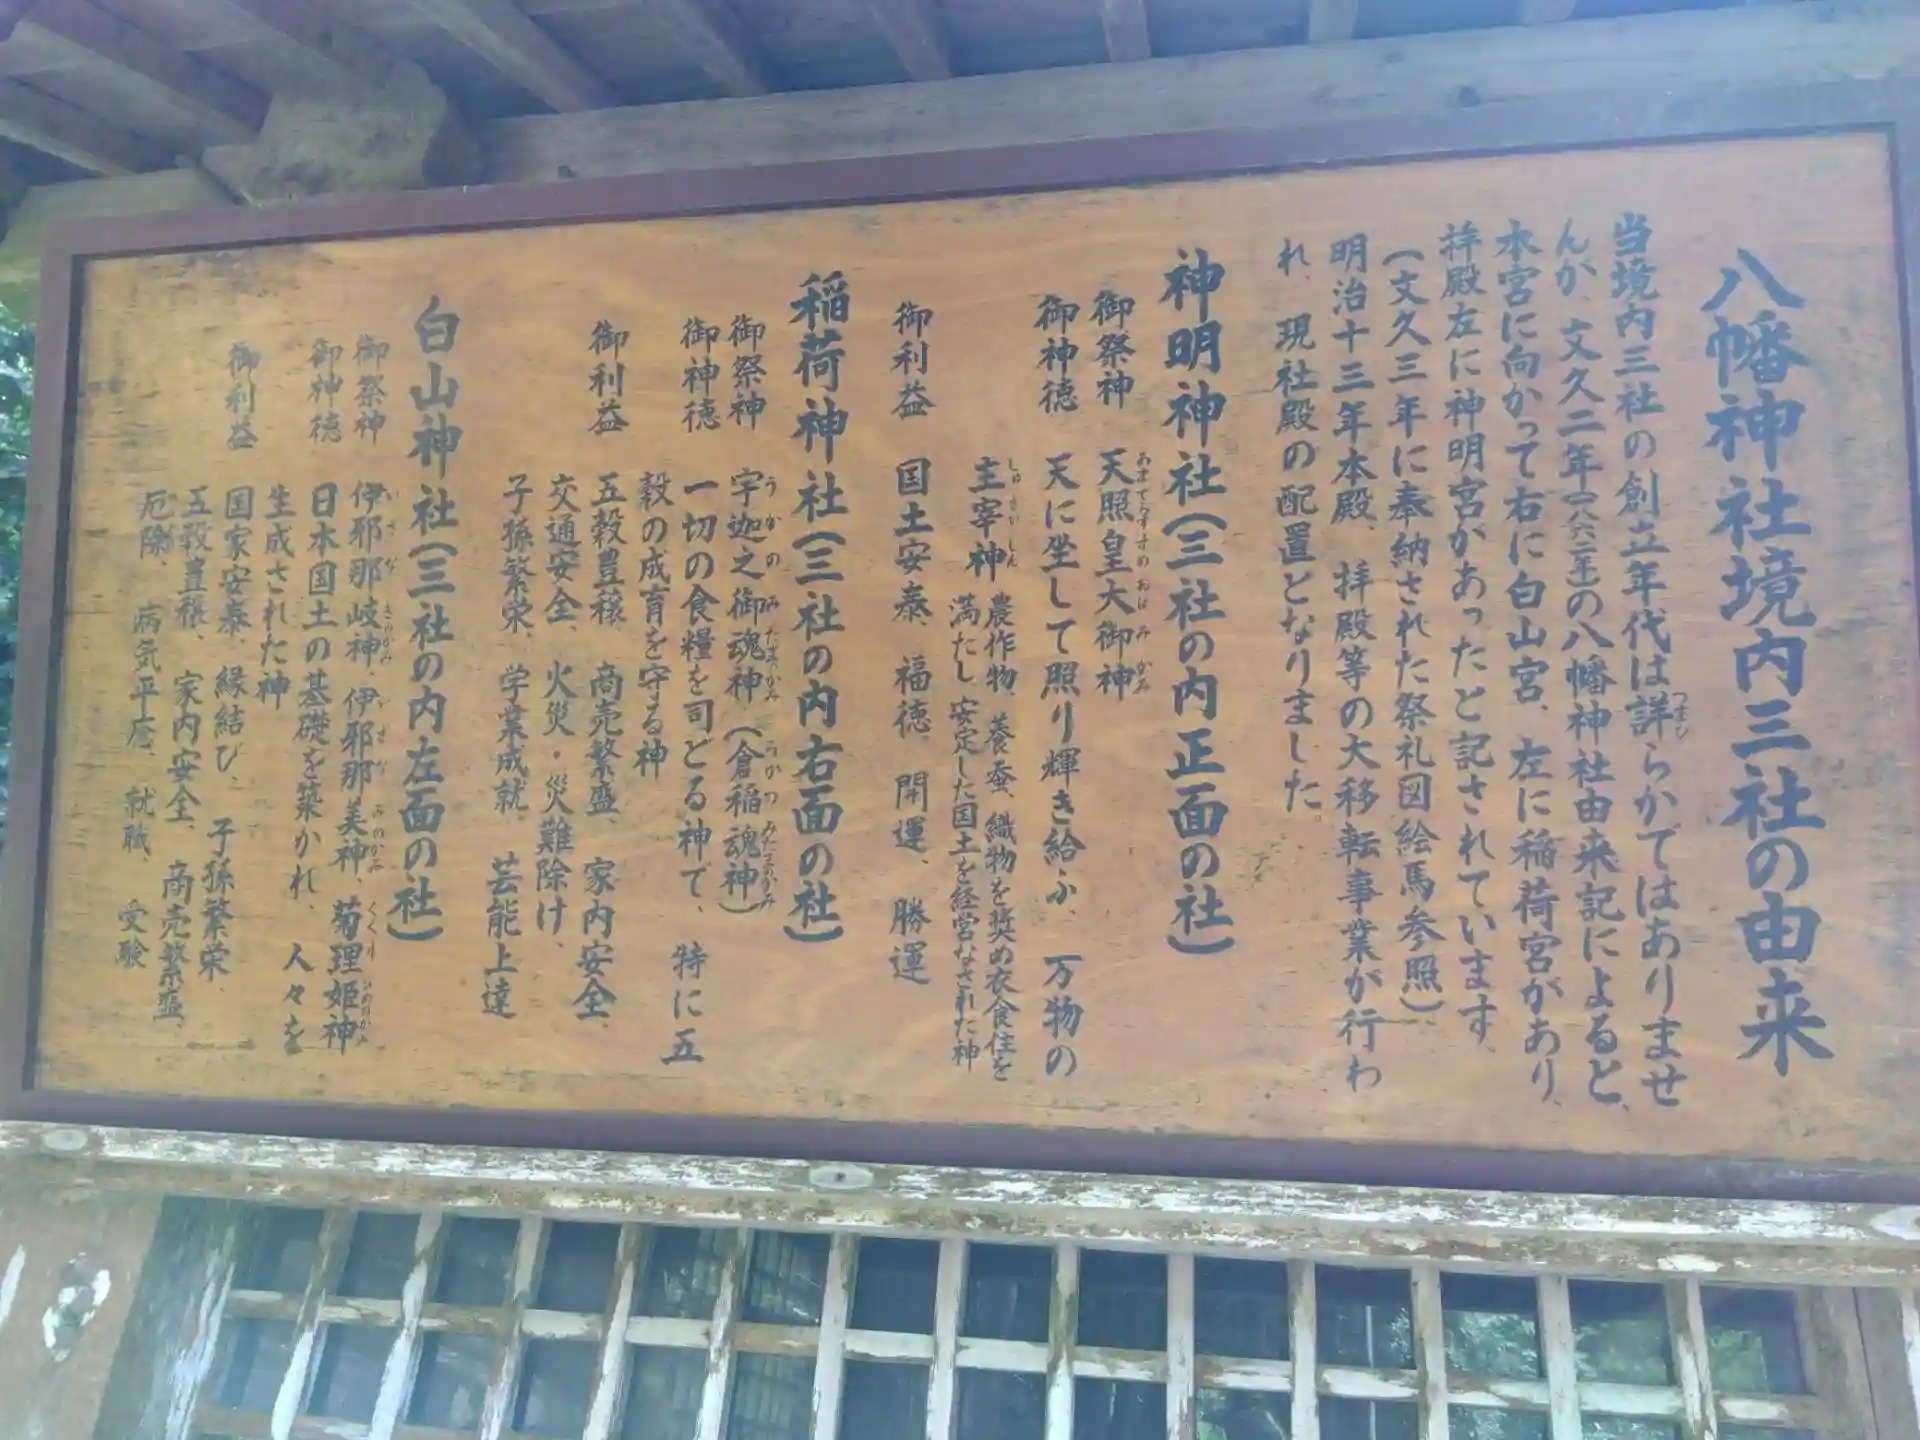 八幡神社境内三社の由来
当境内三社の創立年代は詳らかではありませ
んが、文久二年(一八六二年)の八幡神社由来記によると、
本宮に向かって右に白山宮、左に稲荷宮があり、
拝殿左に神明宮があったと記されています。
(文久三年に奉納された祭礼図絵馬参照)
明治十三年本殿、拝殿等の大移転事業が行わ
れ、現社殿の配置となりました。
神明神社(三社の内正面の社)
御祭神 天照皇大御神
御神徳 天に坐して照り輝き給ふ、万物の
主宰神 農作物、養蚕、織物を奨め衣食住を
満たし、安定した国土を経営なされた神
御利益 国土安泰、福徳、開運、勝運
稲荷神社(三社の内右面の社)
御祭神 宇迦之御魂神(倉稲魂神)
御神徳 一切の食糧を司どる神で、特に五
穀の成育を守る神
御利益 五穀豊穣、商売繁盛、家内安全、
交通安全、火災・災難除け、
子孫繁栄、学業成就、芸能上達
白山神社(三社の内左面の社)
御祭神 伊邪那岐神、伊邪那美神、菊理姫神
御神徳 日本国土の基礎を築かれ、人々を
生成された神
御利益 国家安泰、縁結び、子孫繁栄、
五穀豊穣、家内安全、商売繁盛、
厄除、病気平癒、就職、受験